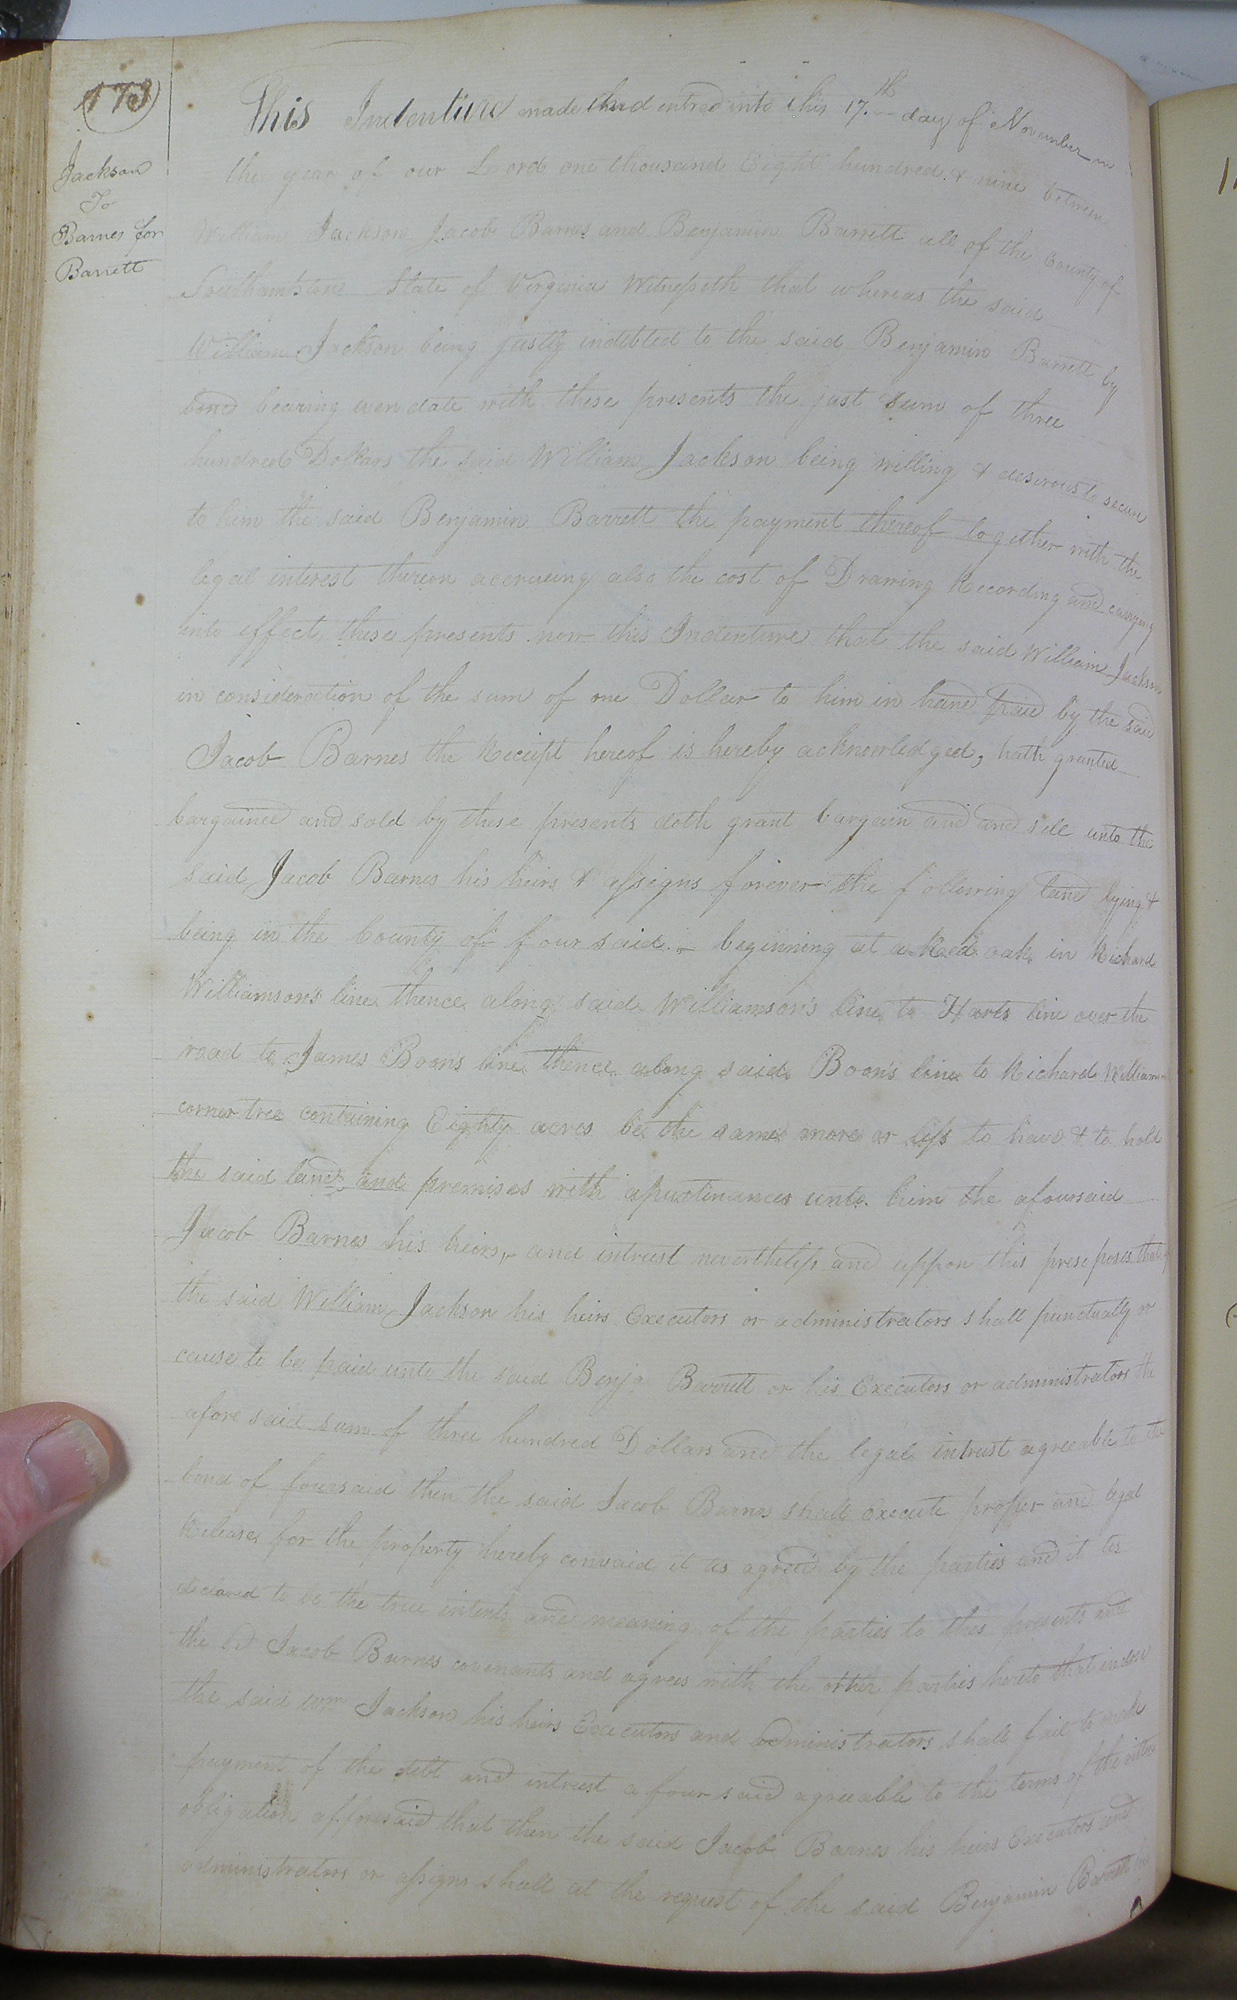 173
Jackson
To
Barnes for
Barrett
This Indenture made and entred into this 17.th day of November in
the year of our Lord one thousand Eight hundred & nine between
William Jackson Jacob Barnes and Benjamin Barrett all of the County of
Southampton State of Virginia Witnesseth that whereas the said
William Jackson being justly indebted to the said Benjamin Barrett by
bond bearing even date with these presents the just sum of three
hundred Dollars the said William Jackson being willing & desirous to secure
to him the said Benjamin Barrett the payment thereof together with the
legal interest thereon accrueing also the cost of Drawing Recording and carrying
into effect these presents now this Indenture that the said William Jackson
in consideration of the sum of one Dollar to him in hand paid by the said
Jacob Barnes the Receipt hereof is hereby acknowledged, hath granted
bargained and sold by these presents doth grant bargain and and sell unto the
said Jacob Barnes his heirs & assigns forever the following land lying &
being in the County of foursaid.- beginning at a Red oak in Richard
Williamson's line thence along said Williamson's line to Harts line over the
road to James Boons line thence along said Boon's line to Richard William
corner tree containing Eighty acres be the same more or less to have & to hold
the said land and premises with apurtinances unto him the afoursaid
Jacob Barnes his heirs,- and intrust nevertheless and uppon this preseposes that if
the said William Jackson his heirs Executors or administrators shall punctually or
cause to be paid unto the said Benja Barrett or his Executors or administrators the
afore said sum of three hundred Dollars and the legal intrust agreeable to the
bond of foursaid then the said Jacob Barnes shall execute proper and legal
Release for the property hereby convaid it is agreed by the parties and it tis
declared to be the true intents and meaning of the parties to thes presents and
the sd Jacob Barnes covenants and agrees with the other parties hereto that in case
the said Wm Jackson his heirs Executors and administrators shall fail to make
payment of the debt and intrest a four said agreeable to the terms of the
obligation afforesaid that then the said Jacob Barnes his heirs Executors and
administrators or assigns shall at the request of the said Benjamin Barrett his